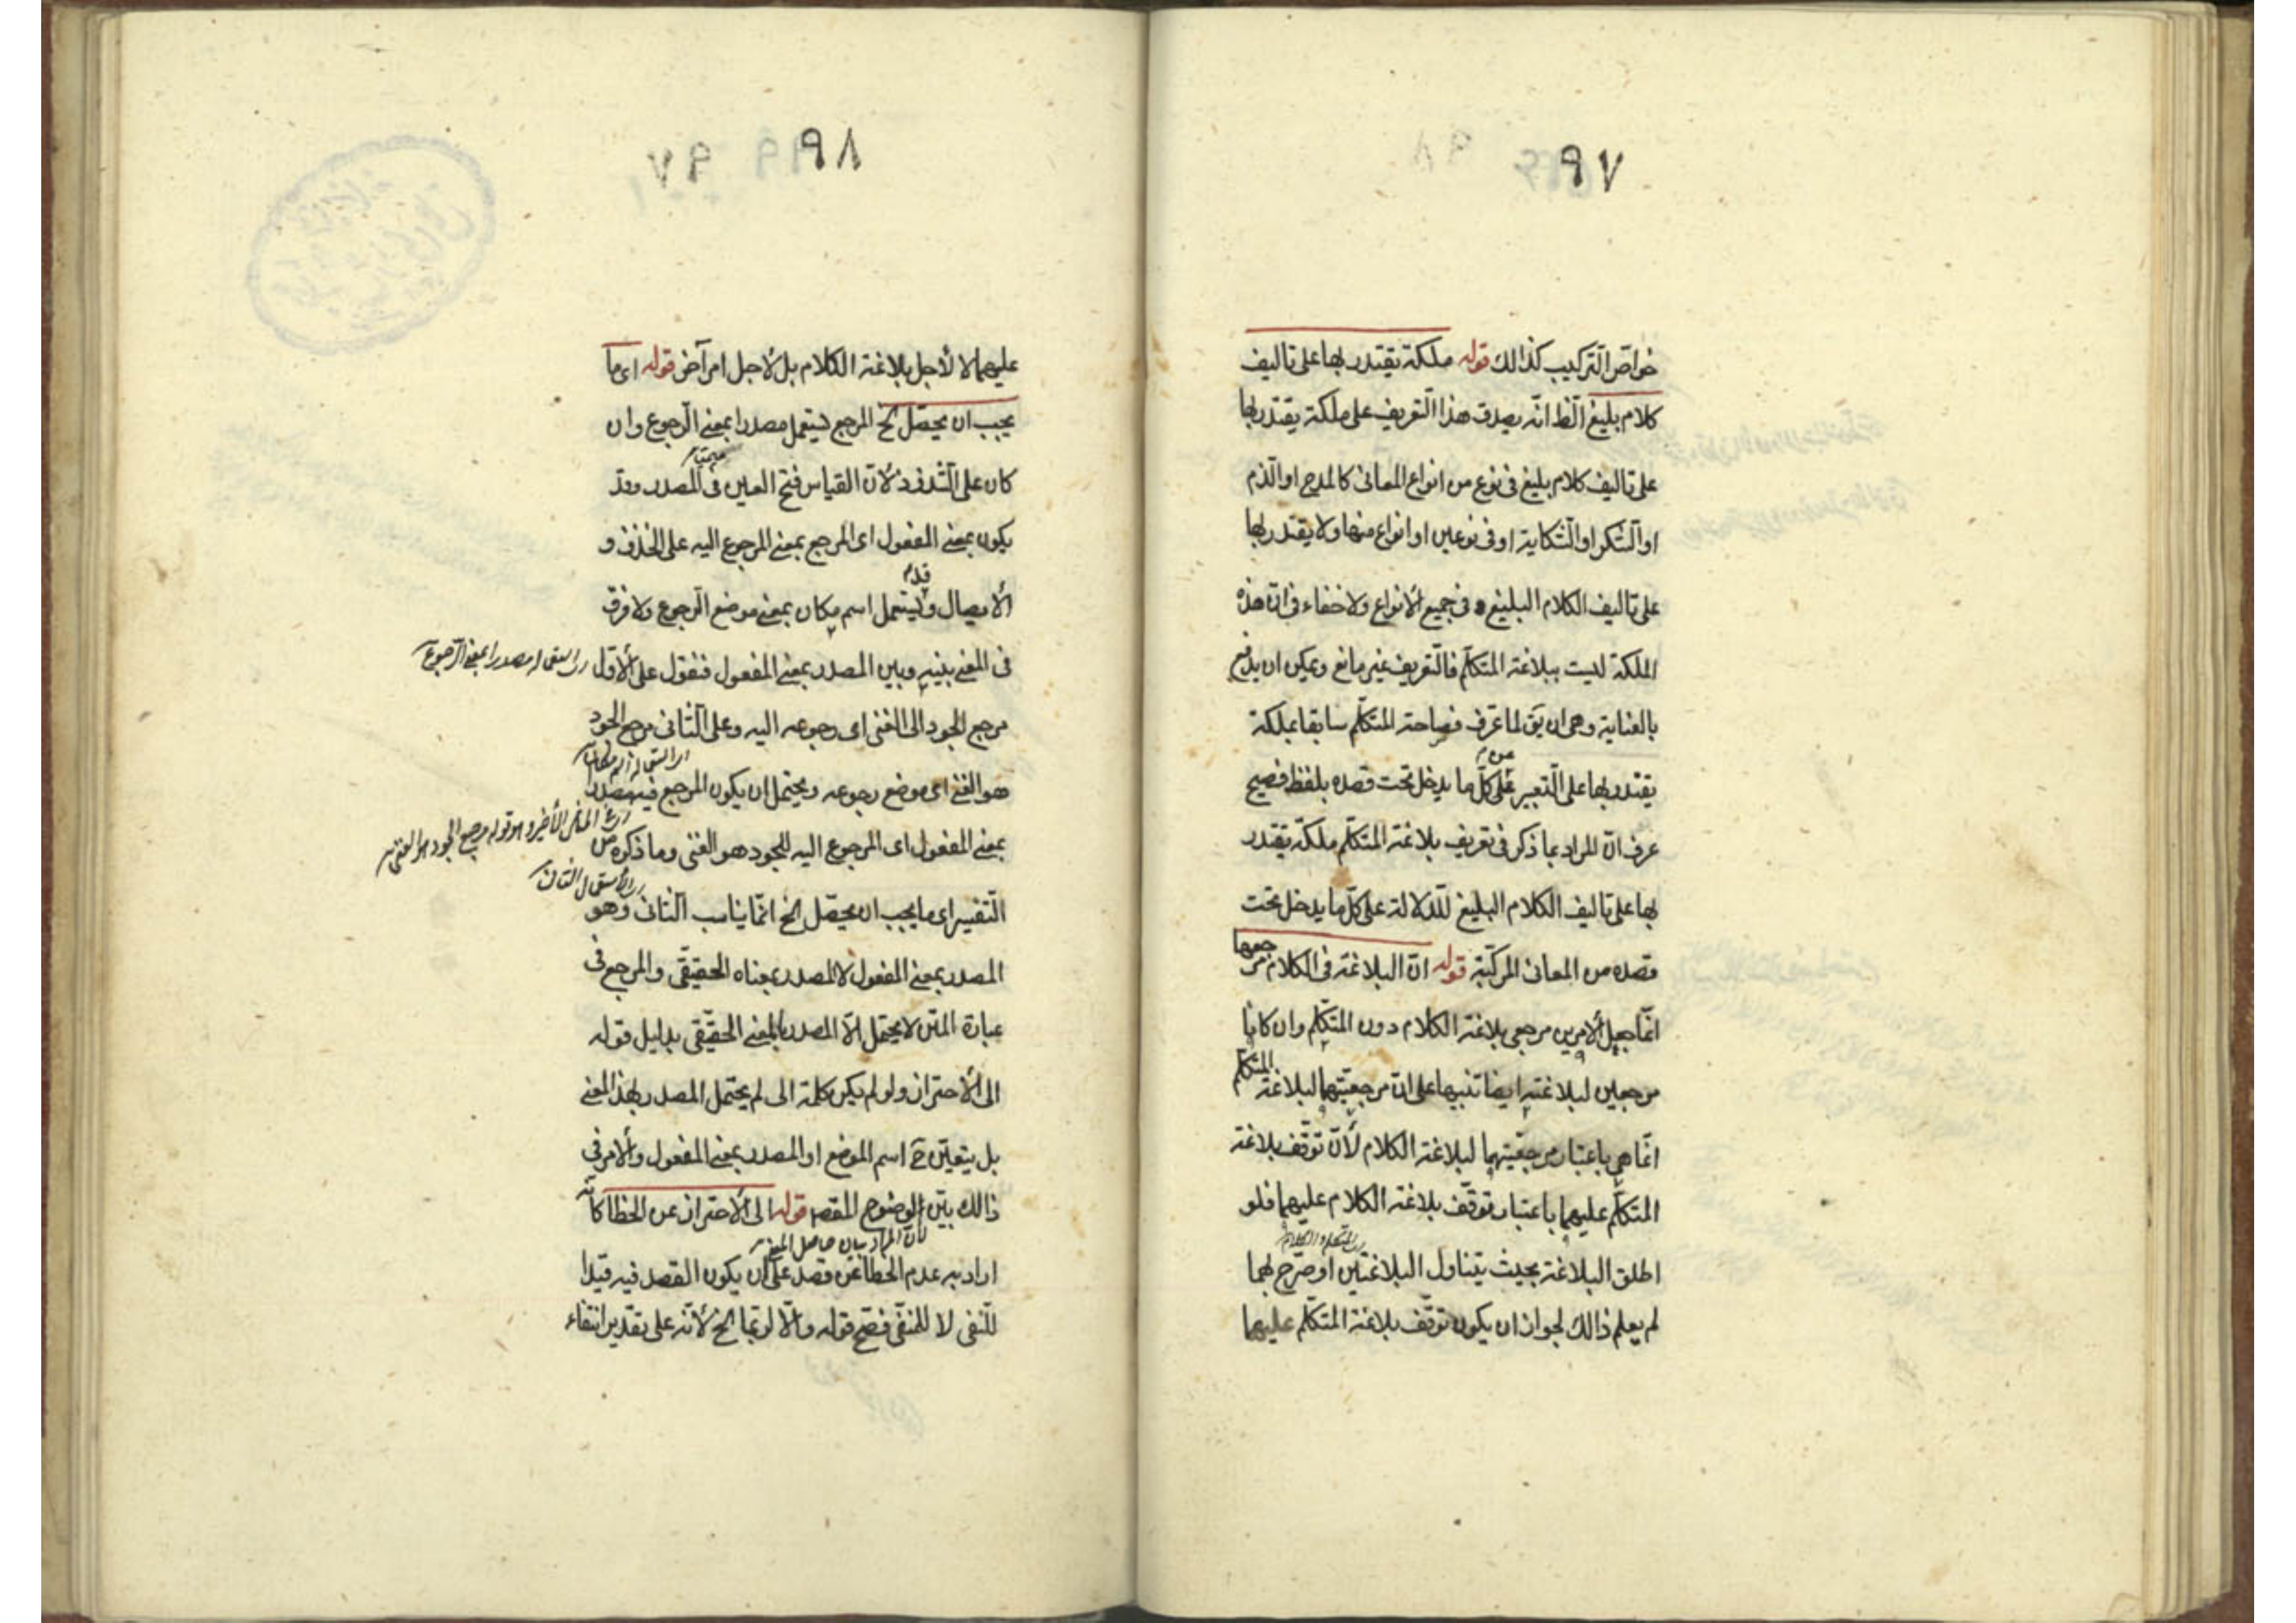 ٩٧
خواصّ التّركيب كذالك قوله ملكة يقتدر بها على تاليف
كلام بليغ الخ انّه يصدق هذا التّعريف على ملكة يقتدر بها
على تاليف كلام بليغ فى نوع من انواع المعانى كالمدح او الذّم
او الشّكر او الشّكاية او فى نوعين او انواع منها ولا يقتدر بها
على تاليف الكلام البليغ فى جميع الأنواع ولا خفاء فى انّ هذه
الملكة ليست ببلاغة المتكلّم فالتّعريف غير مانع ويمكن ان يدفع
بالعناية وهى ان يق لما عرّف فصاحة المتكلّم سابقا بملكة
يقتدر بها على التّعبير عن كلّ ما يدخل تحت قصده بلفظ فصيح
عرف انّ المراد بما ذكر فى تعريف بلاغة المتكلّم ملكة يقتدر
بها على تاليف الكلام البليغ للدّلالة على كلّ ما يدخل تحت
قصده من المعانى المركّبة قوله انّ البلاغة فى الكلام مرجعها
انّما جعل الأمرين مرجعى بلاغة الكلام دون المتكلّم وان كانا
مرجعين لبلاغته ايضا تنبيها على انّ مرجعيّتهما لبلاغة المتكلّم
انّما هى باعتبار مرجعيّتهما لبلاغة الكلام لأنّ توقّف بلاغة
المتكلّم عليهما باعتبار توقّف بلاغة الكلام عليهما فلو
اى المتكلم والكلام
اطلق البلاغة بحيث يتناول البلاغتين او صرّح لهما
لم يعلم ذالك لجواز ان يكون توقّف بلاغة المتكلّم عليهما
٩٨ ٩٧
عليهما لا لأجل بلاغة الكلام بل لأجل امر آخر قوله اى ما
يجب ان يحصّل الخ المرجع يستعمل مصدرا بمعنى الرّجوع وان
كان على الشّذوذ لأنّ القياس فتح العين فى المصدر وقد
يكون بمعنى المفعول اى المرجع بمعنى المرجوع اليه على الحذف و
الأيصال وقد يستعمل اسم مكان بمعنى موضع الرّجوع ولا فرق
فى المعنى بينه وبين المصدر بمعنى المفعول فنقول على الأوّل
اى استعماله مصدرا بمعنى الرّجوع
مرجع الجود الى الغنى اى رجوعه اليه وعلى الثّانى مرجع الجود
هو الغنى اى موضع رجوعه ويحتمل ان يكون المرجع فيه مصدرا
بمعنى المفعول اى المرجوع اليه للجود هو الغنى وما ذكره من
التّفسير اى ما يجب ان يحصّل الخ انّما يناسب الثّانى وهو
اى الأستعمال الثانى
المصدر بمعنى المفعول لا المصدر بمعناه الحقيقى والمرجع فى
عبارة المتن لا يحتمل الّا المصدر بالمعنى الحقيقى بدليل قوله
الى الأحتراز ولو لم يكن كلمة الى لم يحتمل المصدر بهذا المعنى
بل يتعيّن ح اسم الموضع او المصدر بمعنى المفعول والأمر فى
ذالك بيّن لوضوح المقصد قوله الى الأحتراز عن الخطا كانّه
لأن المراد بيان حاصل المعنى
اراد به عدم الخطا عن قصد على ان يكون القصد فيه قيدا
للنّفى لا للمنفّى فصحّ قوله والّا لربّما الخ لأنّه على تقدير انتفاء